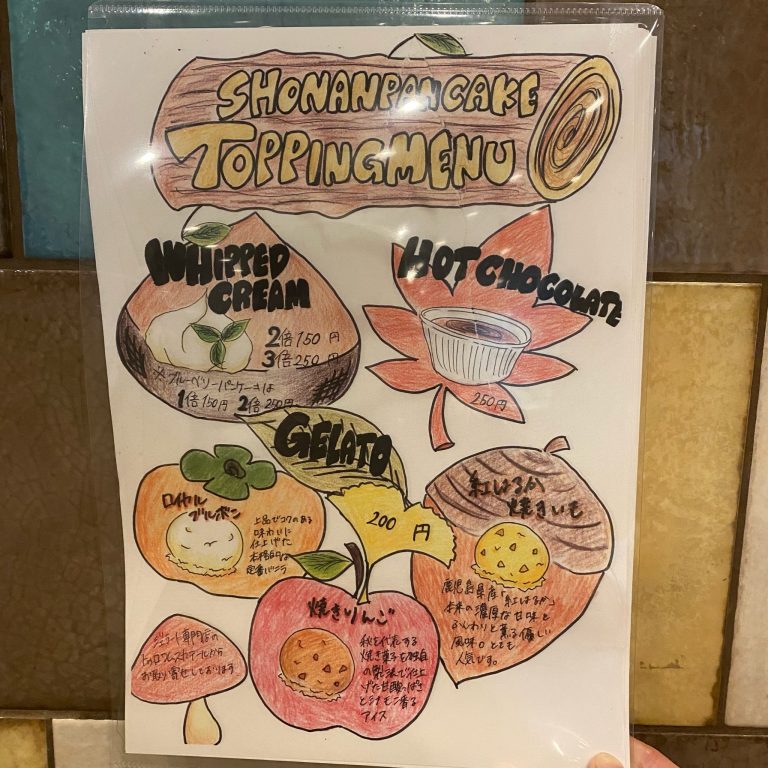 SHONANPANCAKE
TOPPINGMENU
WHIPPED
CREAM
2倍150円
3倍250円
※ブルーベリーパンケーキは
1倍150円 2倍250円
HOT CHOCOLATE
250円
GELATO
200円
ロイヤル
ブルボン
上品でコクのある
味わいに
仕上げた
本格的な
定番バニラ
紅はるか
焼きいも
鹿児島県産「紅はるか」
本来の濃厚な甘味と
ふんわりと薫る優しい
風味。とても
人気です。
焼きりんご
秋を代表する
焼き菓子を独自
の製法で仕上
げた甘酸っぱさ
とシナモン香る
アイス
ジェラート専門店の
お取り寄せしております